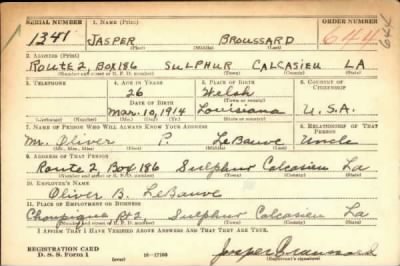 SERIAL NUMBER 1. NAME (Print) ORDER NUMBER
1341 JASPER BROUSSARD 644
(First) (Middle) (Last)
2. ADDRESS (Print)
ROUTE 2, BOX 186 SULPHUR CALCASIEU LA
(Number and street or R. F. D. number) (Town) (County) (State)
3. TELEPHONE 4. AGE IN YEARS 5. PLACE OF BIRTH 6. COUNTRY OF CITIZENSHIP
26 Welsh
DATE OF BIRTH (Town or county)
Mar. 10, 1914 Louisiana U.S.A.
(Mo.) (Day) (Yr.) (State or country)
7. NAME OF PERSON WHO WILL ALWAYS KNOW YOUR ADDRESS 8. RELATIONSHIP OF THAT PERSON
Mr. Oliver P. LeBauve Uncle
(Mr., Mrs., Miss) (First) (Middle) (Last)
9. ADDRESS OF THAT PERSON
Route 2 Box 186 Sulphur Calcasieu La
(Number and street or R. F. D. number) (Town) (County) (State)
10. EMPLOYER'S NAME
Oliver B. LeBauve
11. PLACE OF EMPLOYMENT OR BUSINESS
Rt 2 Sulphur Calcasieu La
(Number and street or R. F. D. number) (Town) (County) (State)
I AFFIRM THAT I HAVE VERIFIED ABOVE ANSWERS AND THAT THEY ARE TRUE.
REGISTRATION CARD
D. S. S. Form 1 16—17105 Jasper Broussard
(Registrant's signature)